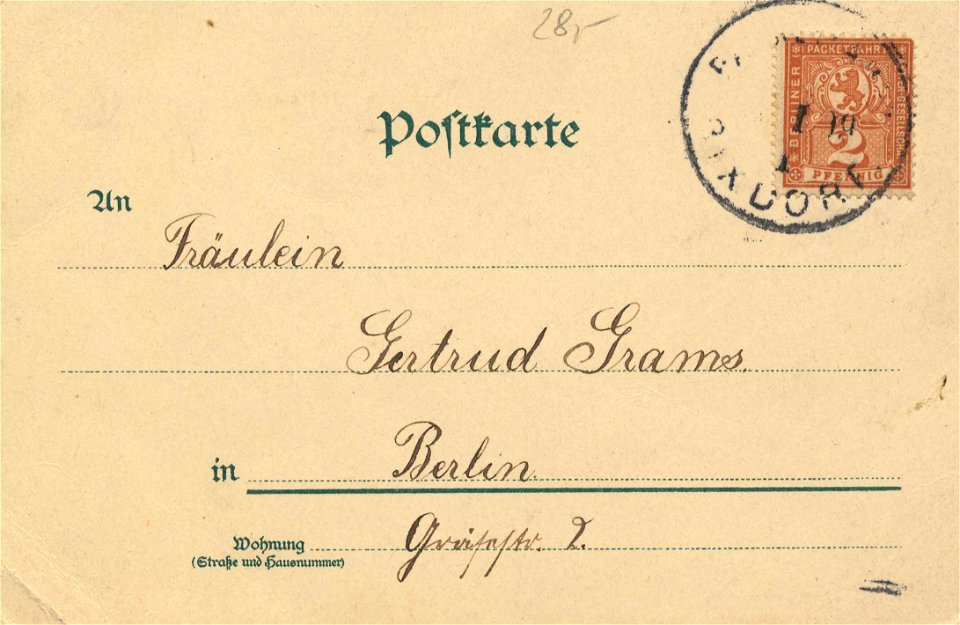 28,-
PACKETFAHRT
BERLINER
GESELLSCH
2
PFENNIG
RIXDORF
Postkarte
An
Fräulein
Gertrud Grams.
in Berlin.
Wohnung Gräfestr. 2.
(Straße und Hausnummer)